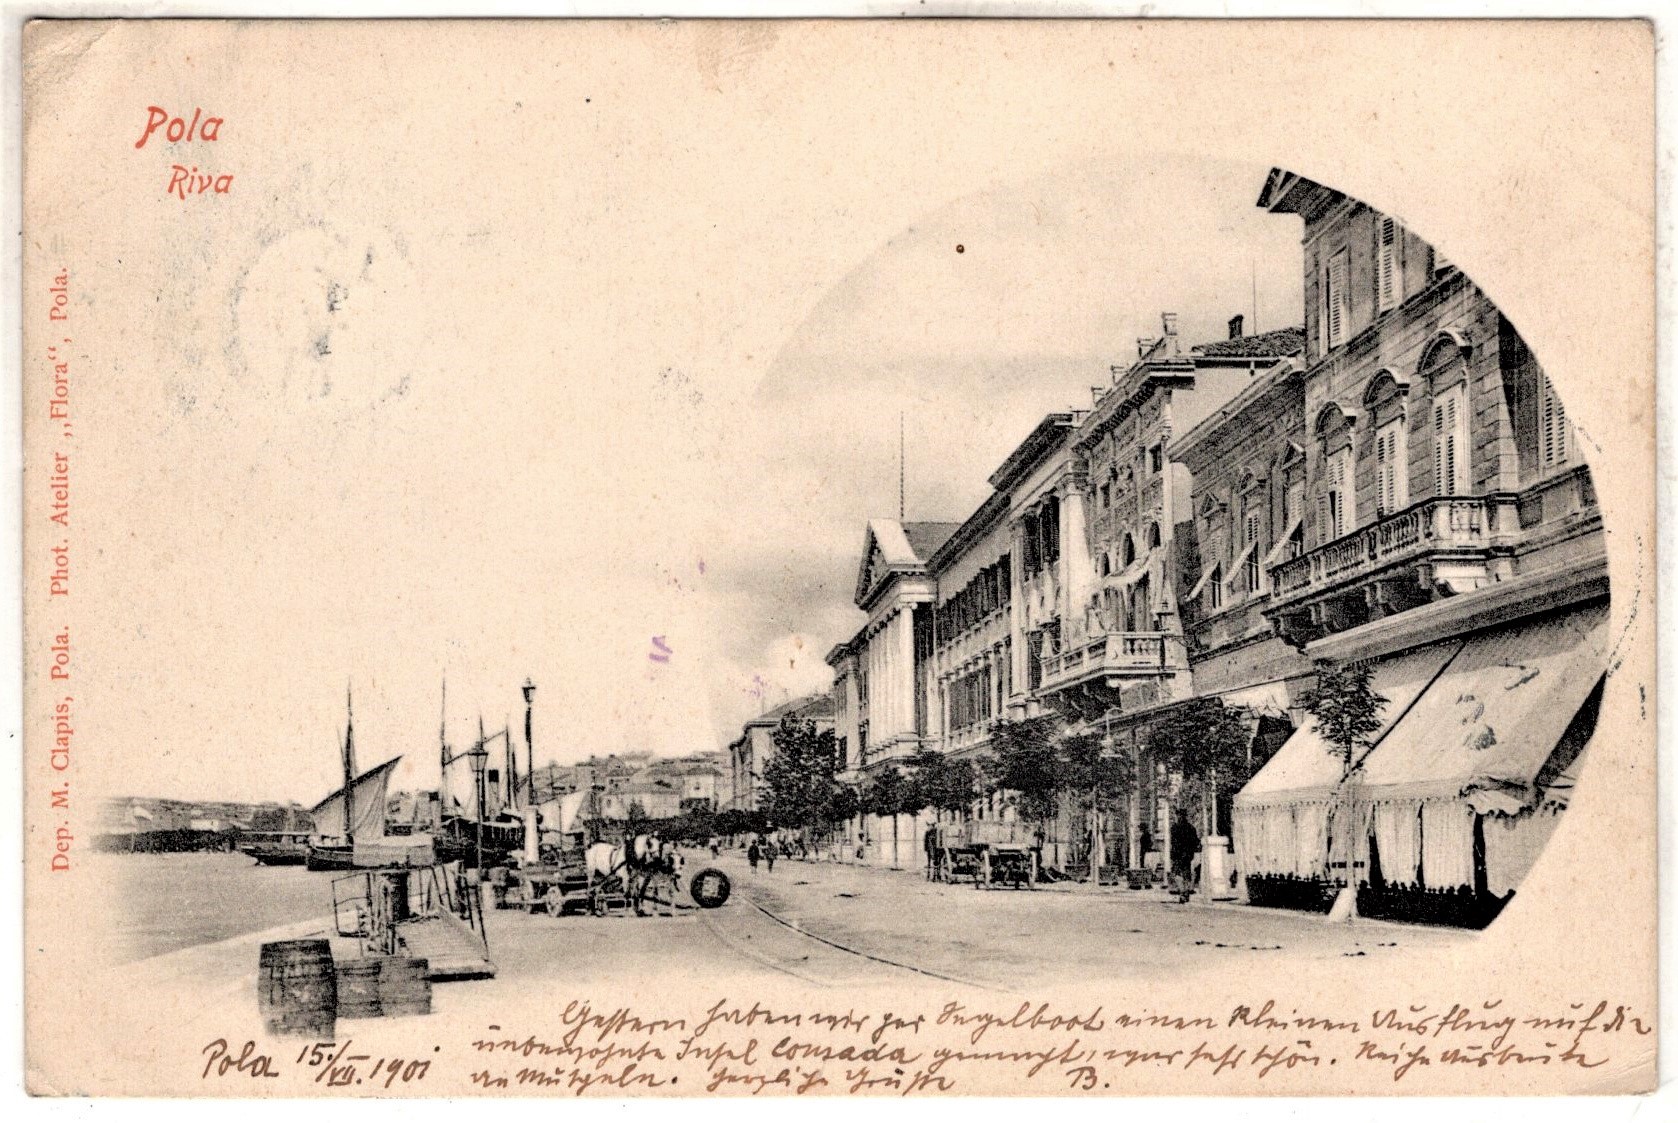 Pola
Riva
Dep. M. Clapis, Pola. Phot. Atelier „Flora“, Pola.
Gestern haben wir per Segelboot einen kleinen Ausflug auf die
unbewohnte Insel gemacht, war sehr schön. Reiche Ausbeute
an Muscheln. Herzliche Grüße B.
Pola 15./VII. 1901